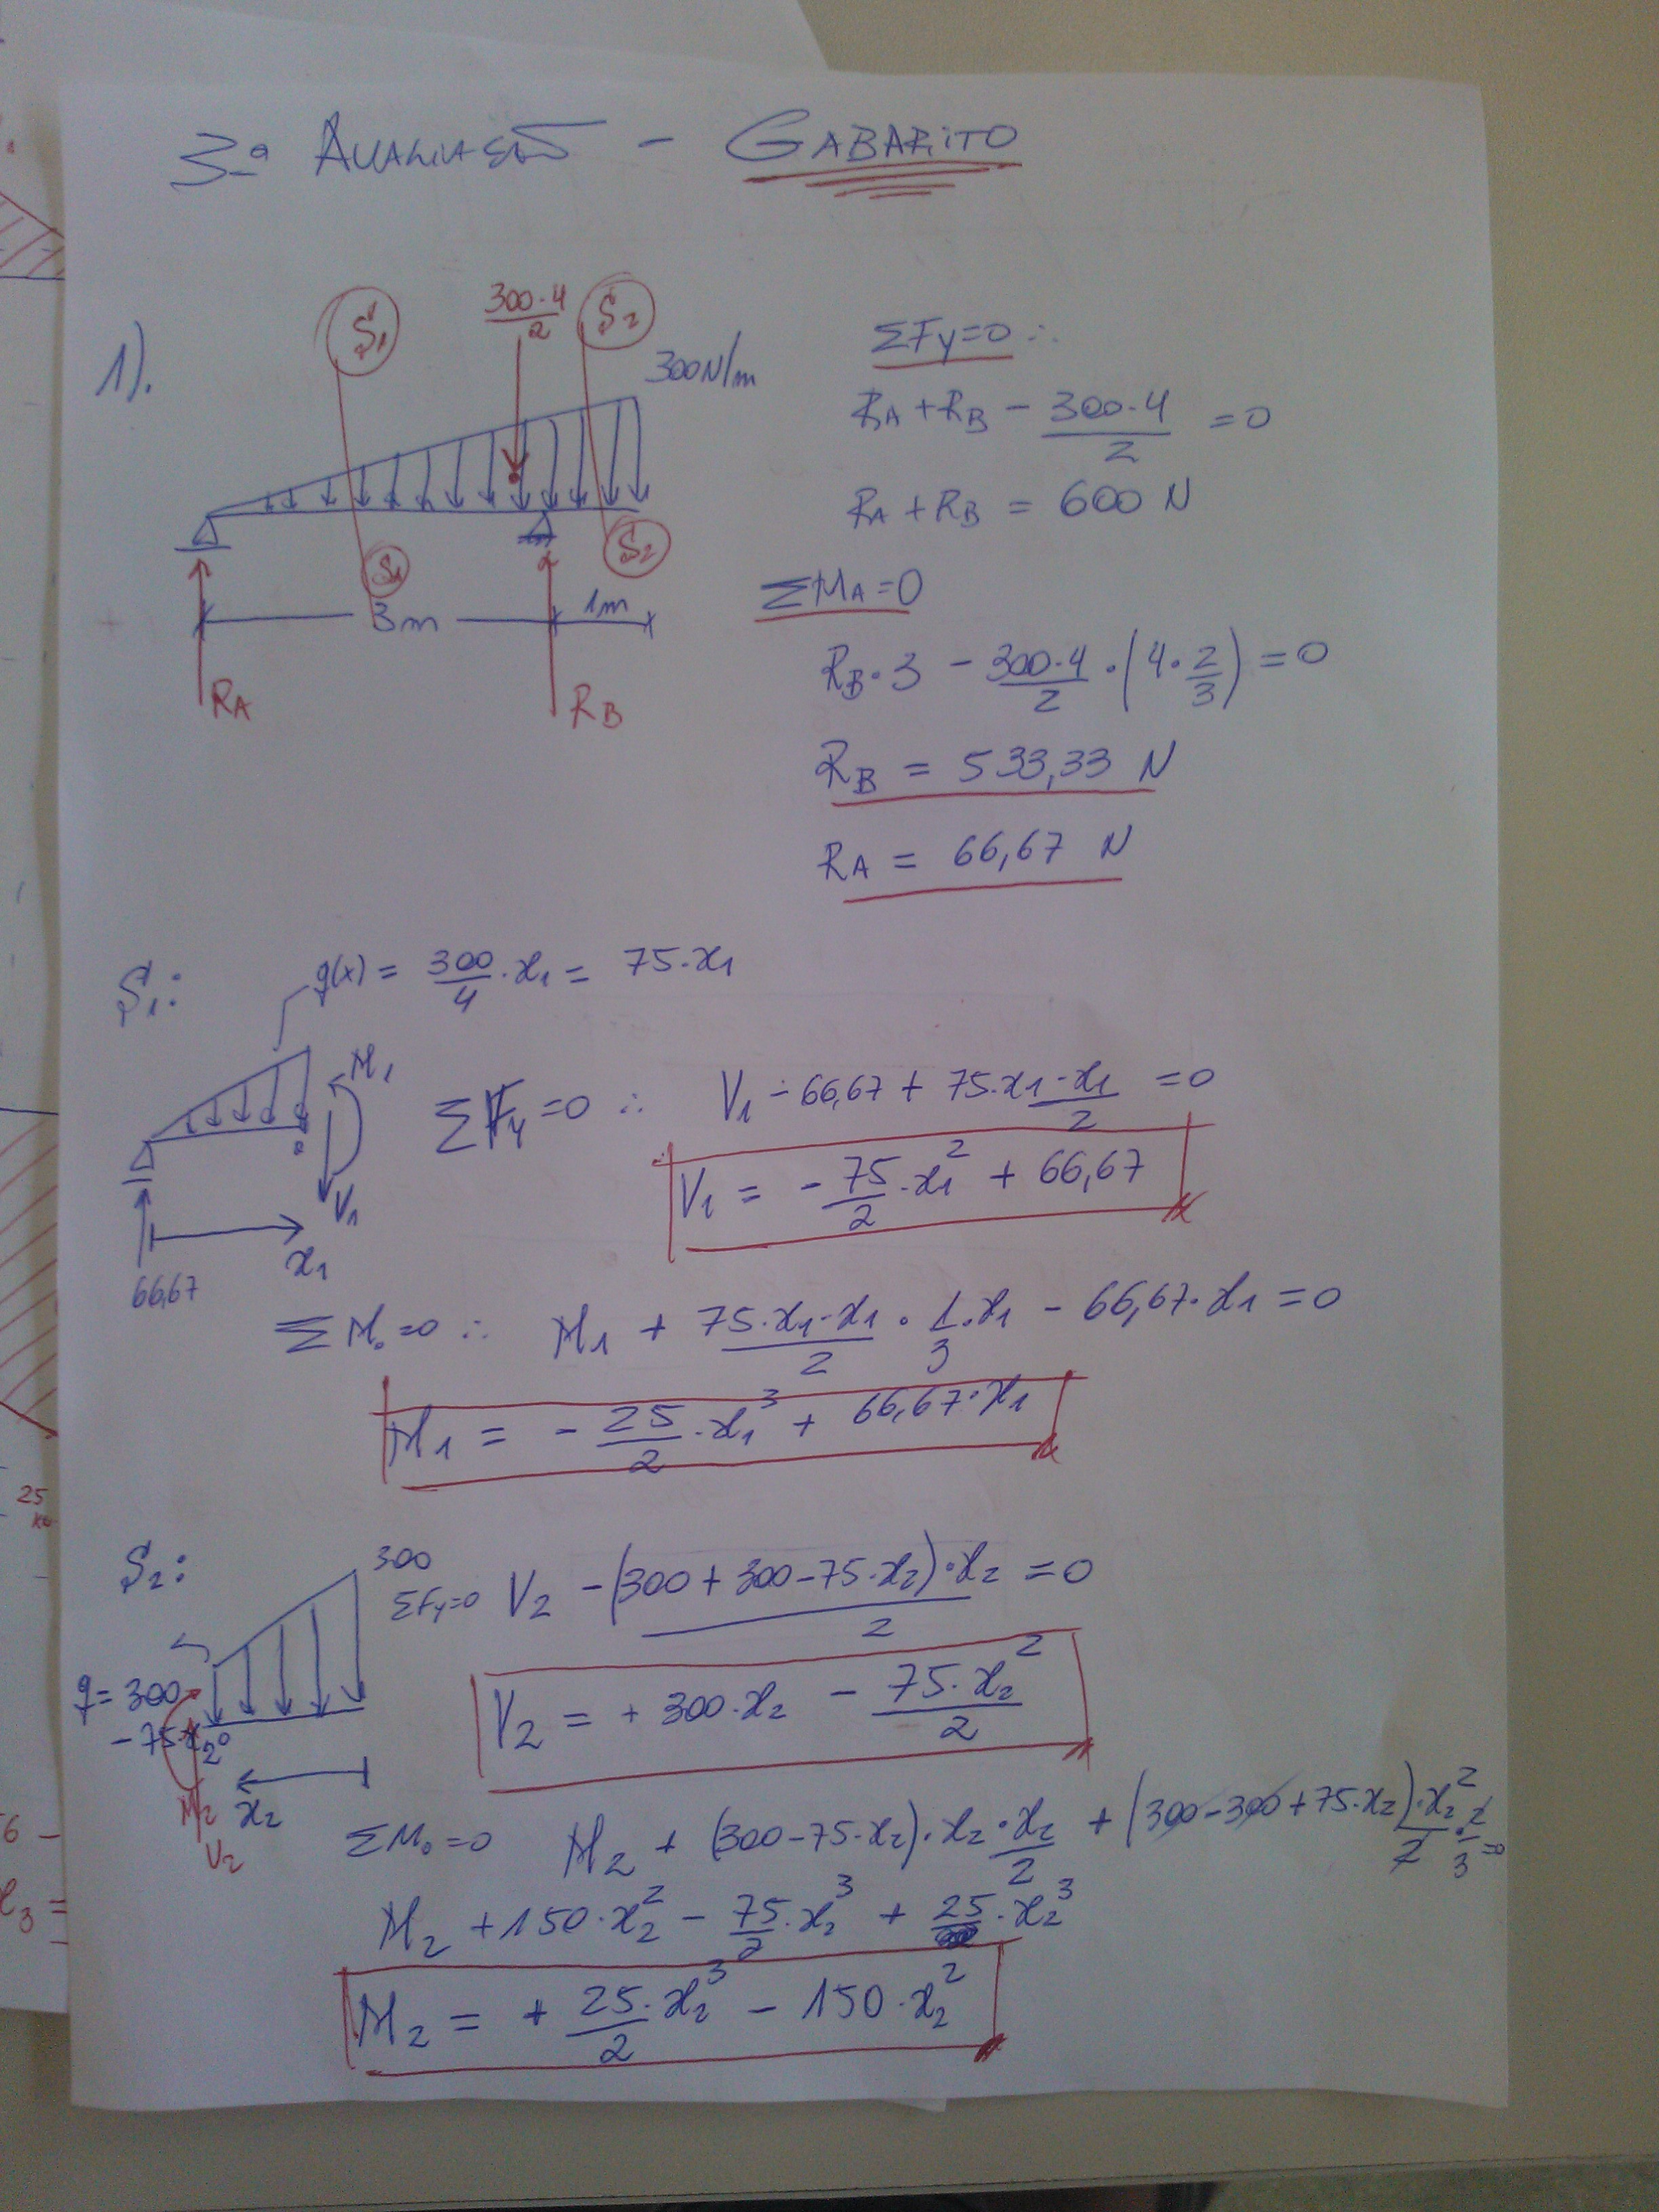 3ª Avaliação - GABARITO
1).
S1
300·4/2
S2
300N/m
S1
S2
3m
1m
RA
RB
ΣFy=0 ∴
RA + RB - 300·4/2 = 0
RA + RB = 600 N
ΣMA=0
RB·3 - 300·4/2 · (4·2/3) = 0
RB = 533,33 N
RA = 66,67 N
S1:
q(x) = 300/4 · x1 = 75·x1
M1
V1
x1
66,67
ΣFy=0 ∴ V1 - 66,67 + 75·x1·x1/2 = 0
V1 = - 75/2 · x1² + 66,67
ΣM0=0 ∴ M1 + 75·x1·x1/2 · 1/3·x1 - 66,67·x1 = 0
M1 = - 25/2 · x1³ + 66,67·x1
S2:
300
q = 300 - 75·x2
0
M2
V2
x2
ΣFy=0 V2 - (300+300-75·x2)·x2/2 = 0
V2 = + 300·x2 - 75·x2²/2
ΣM0=0 M2 + (300-75·x2)·x2·x2/2 + (300-300+75·x2)·x2²/2 · 2/3 = 0
M2 + 150·x2² - 75/2·x2³ + 25·x2³
M2 = + 25/2·x2³ - 150·x2²
25
6 -
x3 =